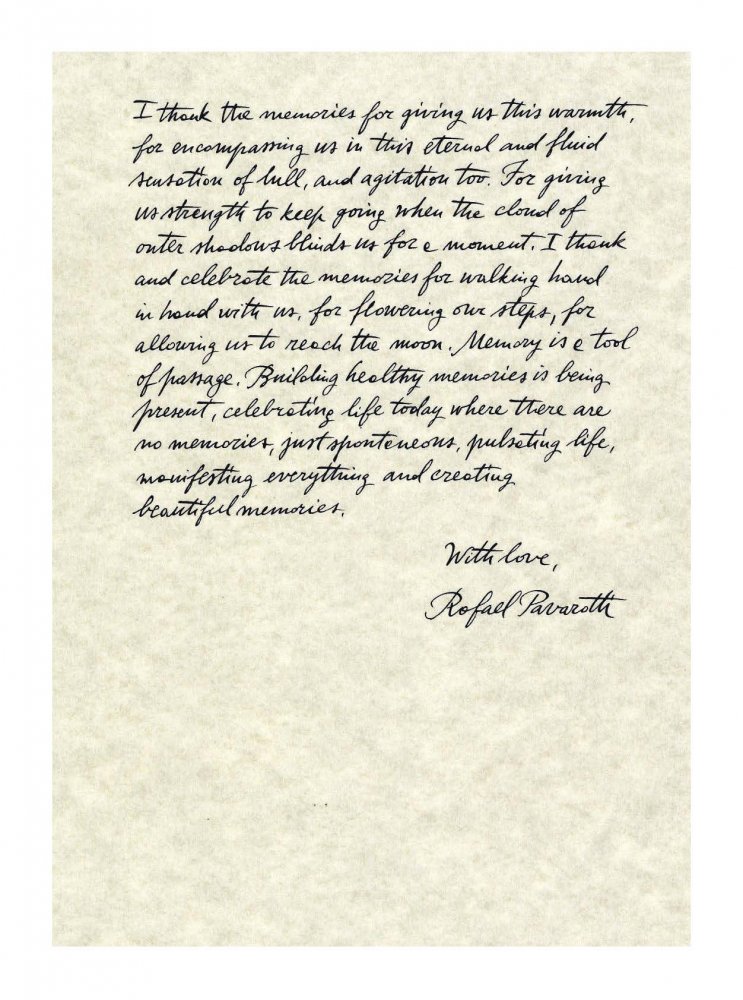 I thank the memories for giving us this warmth,
for encompassing us in this eternal and fluid
sensation of lull, and agitation too. For giving
us strength to keep going when the cloud of
outer shadows blinds us for a moment. I thank
and celebrate the memories for walking hand
in hand with us, for flowering our steps, for
allowing us to reach the moon. Memory is a tool
of passage. Building healthy memories is being
present, celebrating life today where there are
no memories, just sponteneous, pulsating life,
manifesting everything and creating
beautiful memories.
With love,
Rafael Pavarotti